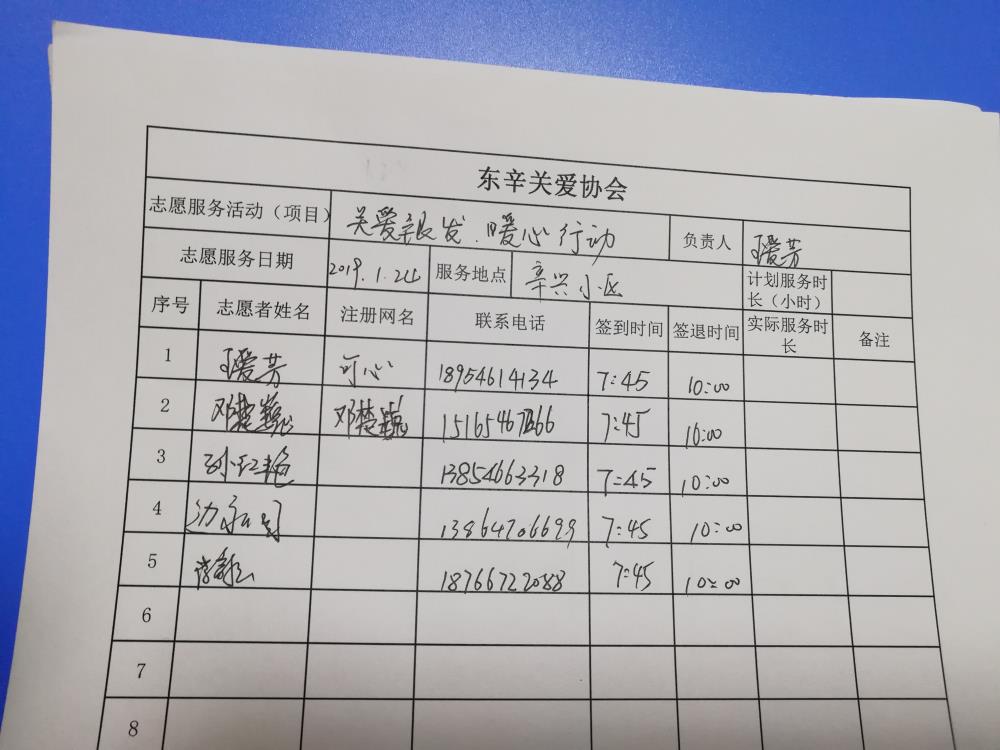 东辛关爱协会
志愿服务活动（项目） 关爱银发.暖心行动 负责人 王爱芳
志愿服务日期 2019.1.24 服务地点 辛兴小区 计划服务时长（小时）
序号 志愿者姓名 注册网名 联系电话 签到时间 签退时间 实际服务时长 备注
1 王爱芳 可心 18954614134 7:45 10:00
2 邓楚巍 邓楚巍 7:45 10:00
3 孙红艳 13854663318 7:45 10:00
4 13864706699 7:45 10:00
5 18766722088 7:45 10:00
6
7
8